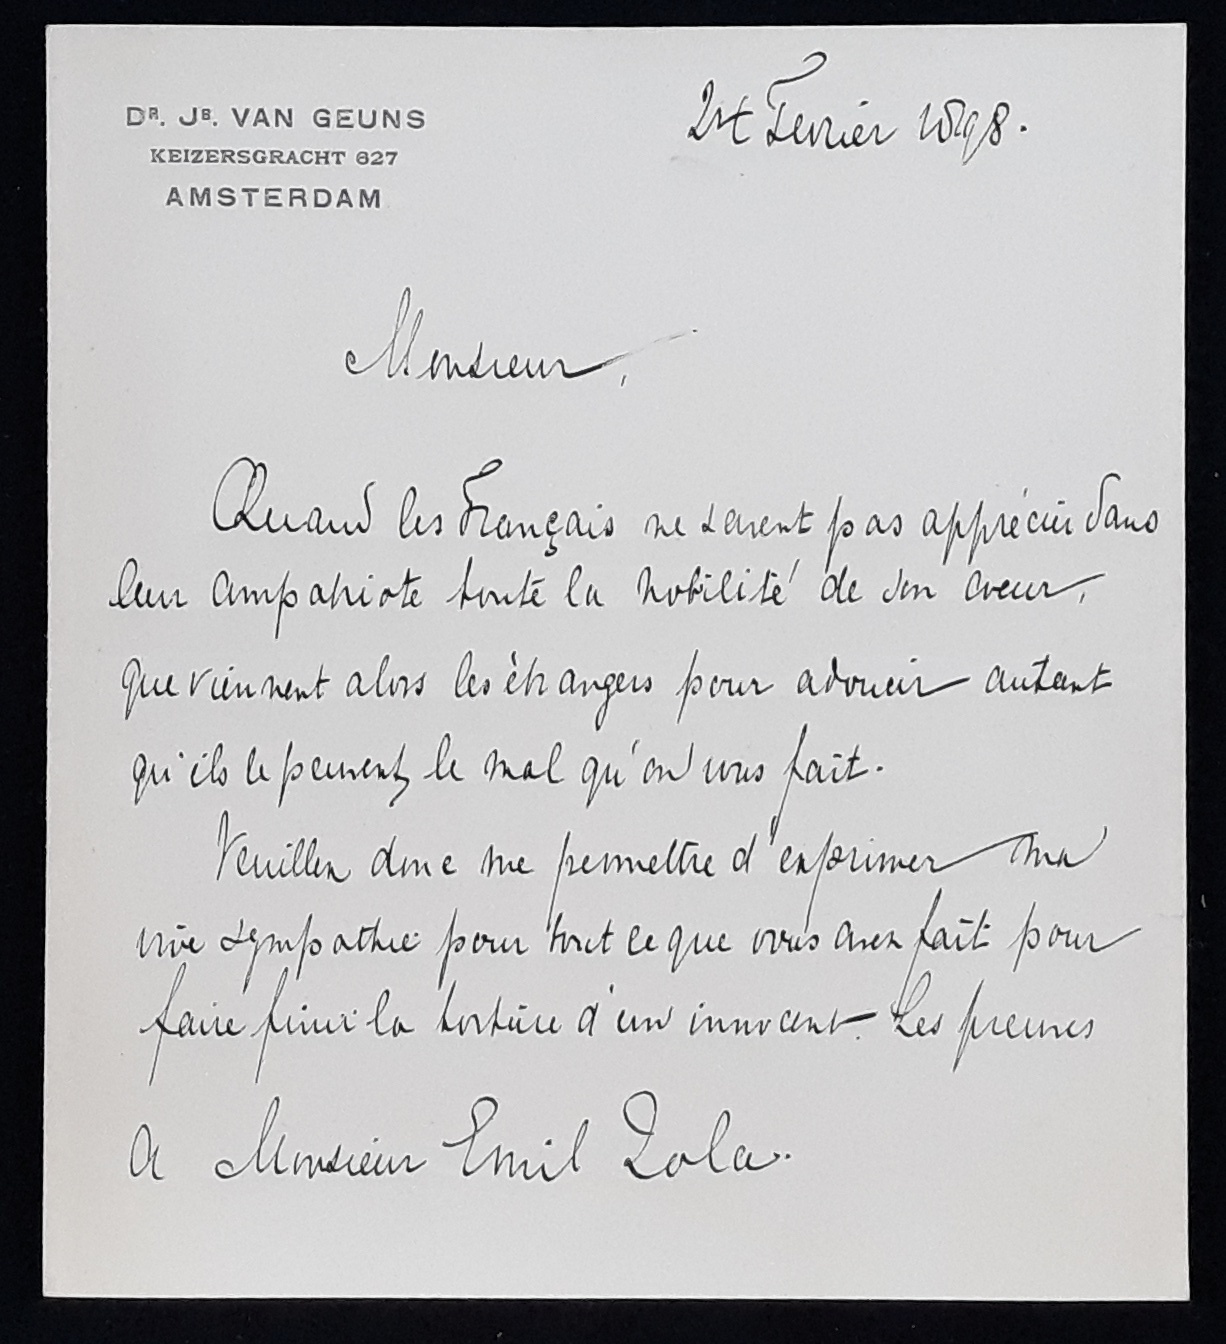 DR. JB. VAN GEUNS
KEIZERSGRACHT 627
AMSTERDAM
Fevrier 1898.
Monsieur,
Quand les Français ne savent pas apprécier dans
leur compatriote toute la nobilité de son coeur,
que viennent alors les étrangers pour adoucir autant
qu'ils le peuvent, le mal qu'on vous fait.
Veuillez donc me permettre d'exprimer ma
vive sympathie pour tout ce que vous avez fait pour
faire finir la torture d'un innocent. Les preuves
A Monsieur Emil Zola.